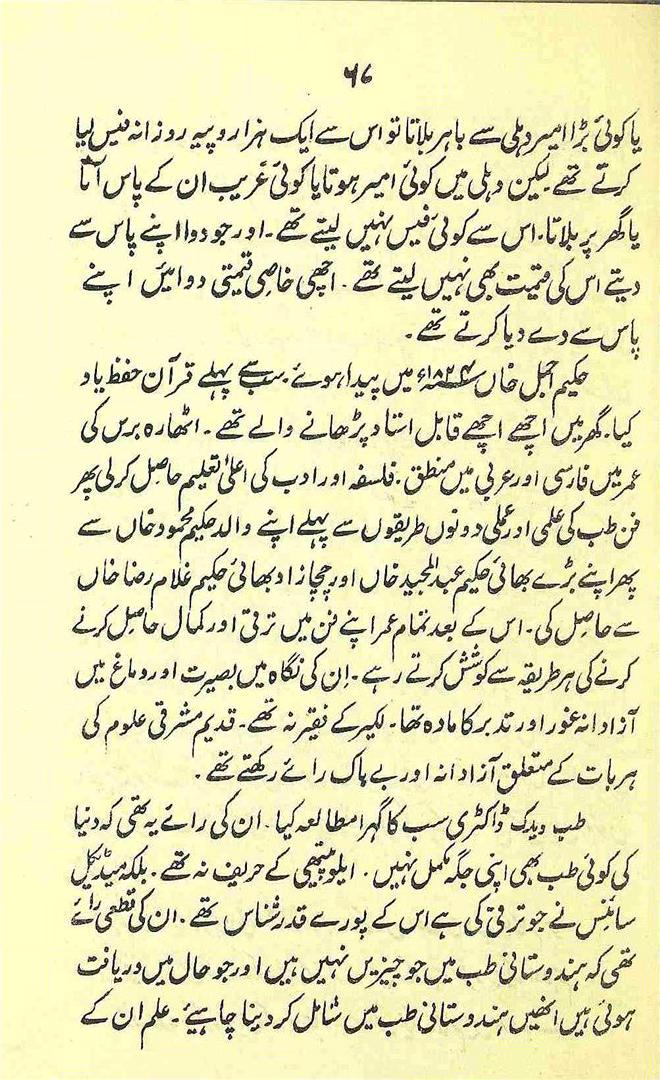 ۶۷
یا کوئی بڑا امیر دہلی سے باہر بلاتا تو اس سے ایک ہزار روپیہ روزانہ فیس لیا
کرتے تھے لیکن دہلی میں کوئی امیر ہوتا یا کوئی غریب ان کے پاس آتا
یا گھر پر بلاتا۔ اس سے کوئی فیس نہیں لیتے تھے۔ اور جو دوا اپنے پاس سے
دیتے اس کی قیمت بھی نہیں لیتے تھے۔ اچھی خاصی قیمتی دوائیں اپنے
پاس سے دے دیا کرتے تھے۔
حکیم اجمل خاں ۱۸۲۴ء میں پیدا ہوئے۔ سب سے پہلے قرآن حفظ یاد
کیا۔ گھر میں اچھے اچھے قابل استاد پڑھانے والے تھے۔ اٹھارہ برس کی
عمر میں فارسی اور عربی میں منطق۔ فلسفہ اور ادب کی اعلیٰ تعلیم حاصل کرلی پھر
فن طب کی علمی اور عملی دونوں طریقوں سے پہلے اپنے والد حکیم محمود خاں سے
پھر اپنے بڑے بھائی حکیم عبدالمجید خاں اور چچازاد بھائی حکیم غلام رضا خاں
سے حاصل کی۔ اس کے بعد تمام عمر اپنے فن میں ترقی اور کمال حاصل کرنے
کرنے کی ہر طریقہ سے کوشش کرتے رہے۔ اِن کی نگاہ میں بصیرت اور دماغ میں
آزادانہ غور اور تدبر کا مادہ تھا۔ لکیر کے فقیر نہ تھے۔ قدیم مشرقی علوم کی
ہر بات کے متعلق آزادانہ اور بے باک رائے رکھتے تھے۔
طب ویدک ڈاکٹری سب کا گہرا مطالعہ کیا۔ ان کی رائے یہ تھی کہ دنیا
کی کوئی طب بھی اپنی جگہ مکمل نہیں۔ ایلوپیتھی کے حریف نہ تھے۔ بلکہ میڈیکل
سائنس نے جو ترقی کی ہے اس کے پورے قدر شناس تھے۔ ان کی قطعی رائے
تھی کہ ہندوستانی طب میں جو چیزیں نہیں ہیں اور جو حال میں دریافت
ہوئی ہیں انھیں ہندوستانی طب میں شامل کر دینا چاہیئے۔ علم ان کے